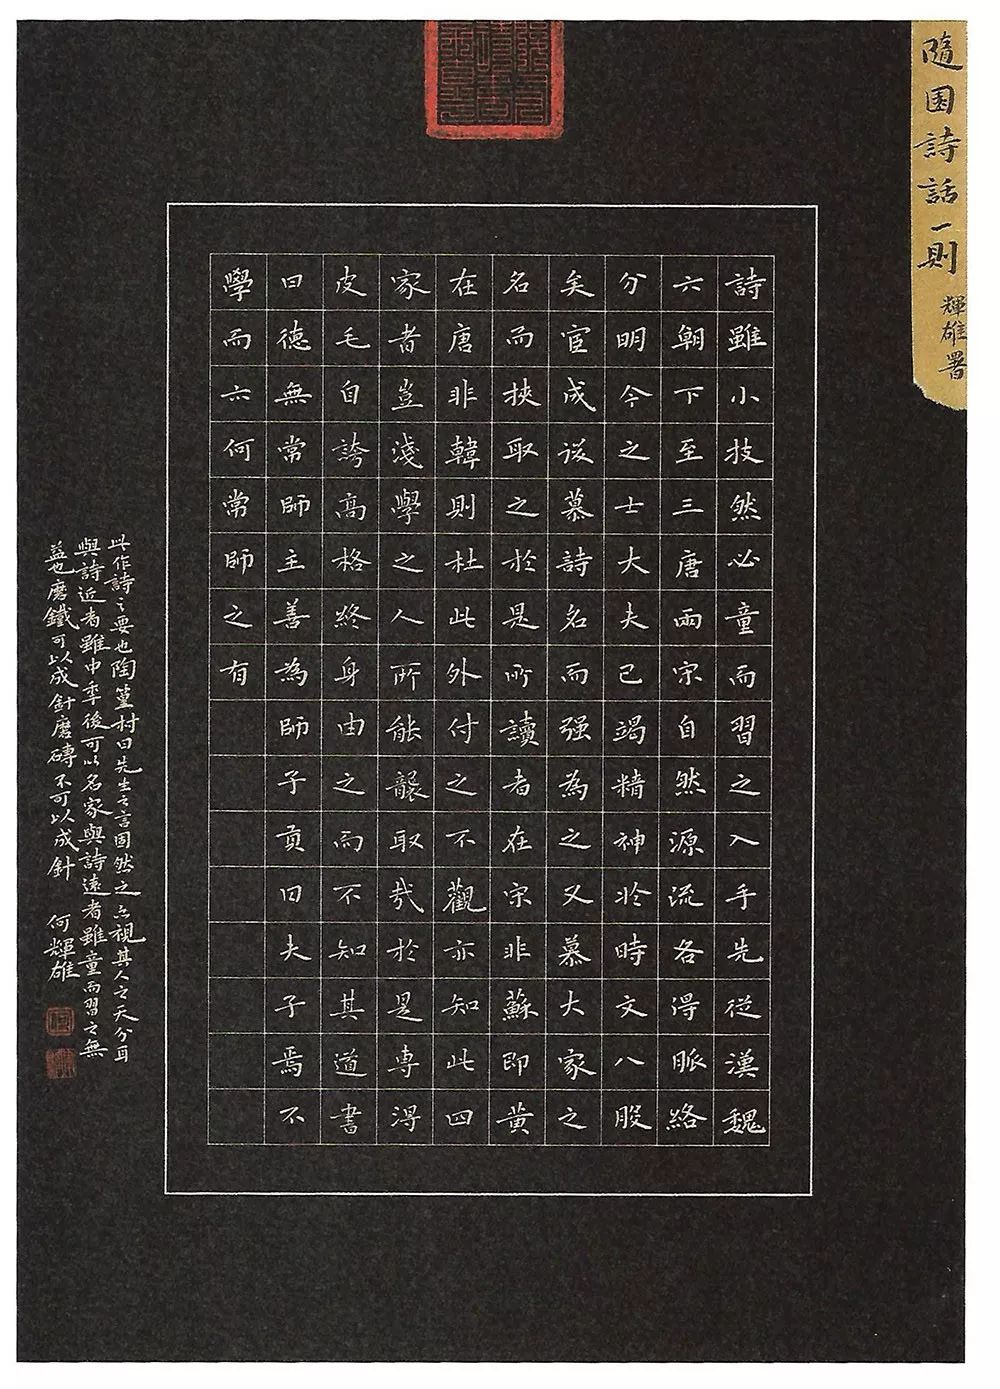 隨園詩話一則 輝雄署
詩雖小技然必童而習之入手先從漢魏
六朝下至三唐兩宋自然源流各得脈絡
分明今之士大夫已竭精神於時文八股
矣宦成後慕詩名而强為之又慕大家之
名而挾取之於是所讀者在宋非蘇即黃
在唐非韓則杜此外付之不觀亦知此四
家者豈淺學之人所能襲取哉於是專得
皮毛自誇高格終身由之而不知其道書
曰德無常師主善為師子貢曰夫子焉不
學而亦何常師之有
此作詩之要也陶篁村曰先生之言固然々亦視其人之天分耳
與詩近者雖中年後可以名家與詩遠者雖童而習之無
益也磨鐵可以成針磨磚不可以成針 何輝雄